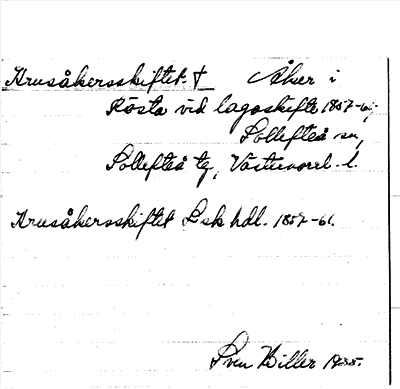 Krusåkersskiftet † Åker i
Rösta vid lagaskifte 1857-61,
Sollefteå sn,
Sollefteå tg, Västernorrl. l.
Krusåkersskiftet Lsk hdl. 1857-61.
Sven Hiller 1935.